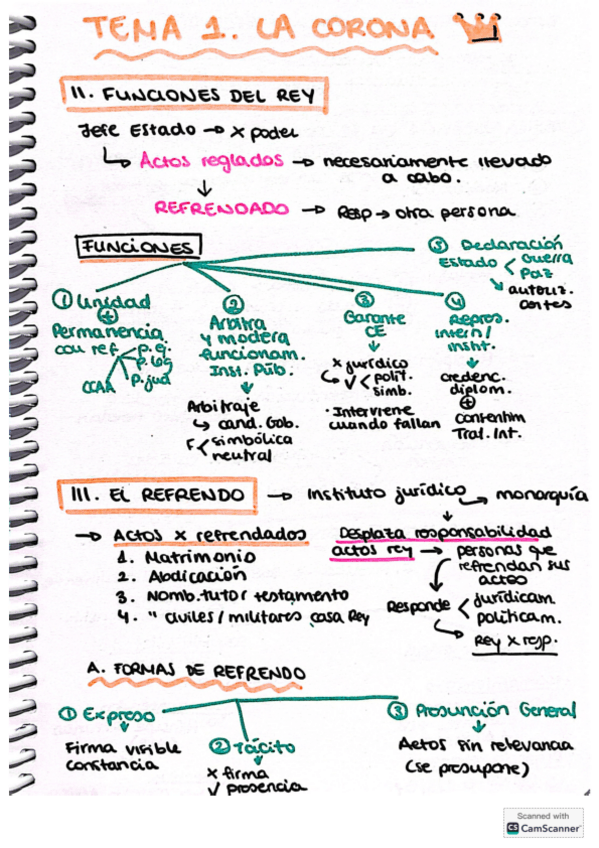 TEMA 1. LA CORONA
II. FUNCIONES DEL REY
Jefe Estado → x poder
↳ Actos reglados → necesariamente llevado
a cabo.
↓
REFRENDADO → Resp → otra persona
FUNCIONES
① Unidad
⊕
Permanencia.
con ref.
p.ej.
p.leg
p.jud
CCAA
②
Arbitra
y modera
funcionam.
Inst. Púb.
↓
Arbitraje
↳ cand. Gob.
F < simbólica
neutral
③
Garante
CE
↓
x jurídico
↳ √ < polít.
simb.
· Interviene
cuando fallan
④
Repres.
intern/
instit.
↓
credenc.
diplom.
⊕
Consentim
Trat. Int.
⑤ Declaración
Estado < Guerra
Paz
↘ autoriz.
Cortes
III. EL REFRENDO → Instituto jurídico → monarquía
↓
Desplaza responsabilidad
actos rey → personas que
refrendan sus
actos
Responde < jurídicam.
políticam.
↳ Rey x resp.
→ Actos x refrendados
1. Matrimonio
2. Abdicación
3. Nomb. tutor testamento
4. " civiles/militares casa Rey
A. FORMAS DE REFRENDO
① Expreso
↓
Firma visible
constancia
② Tácito
↓
x firma
√ presencia
③ Presunción General
↓
Actos sin relevancia
(se presupone)
Scanned with
CS CamScanner